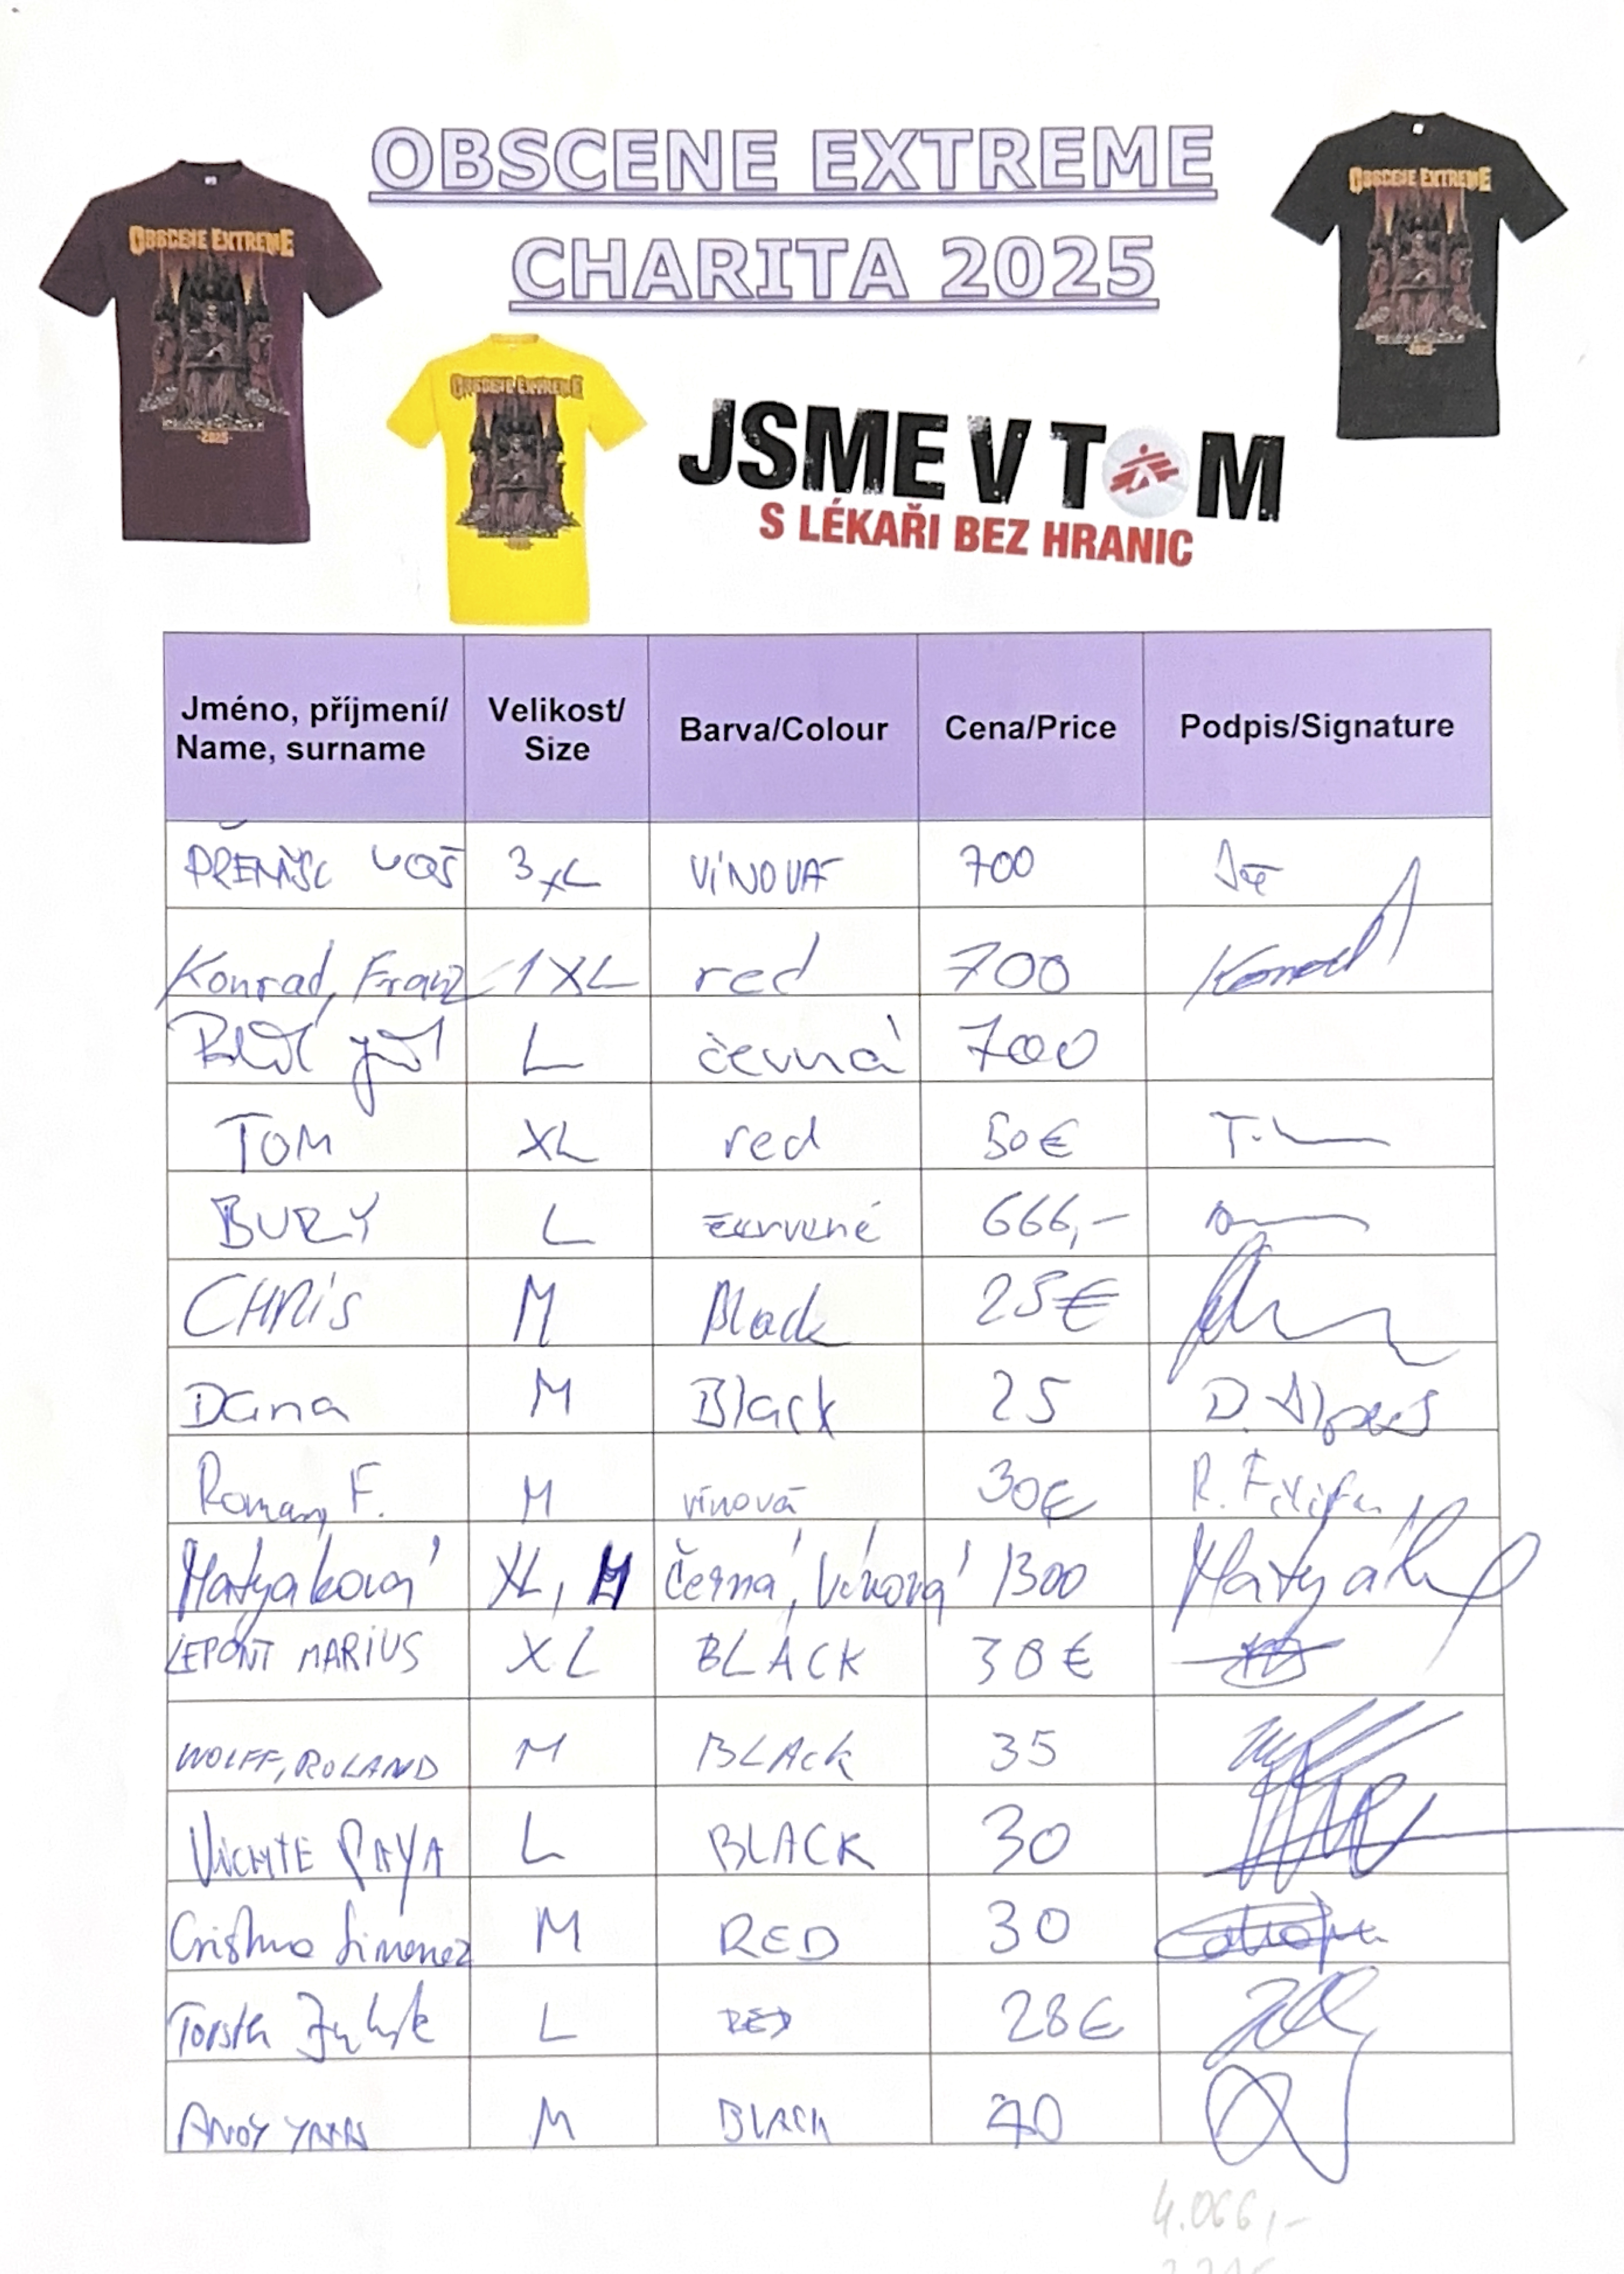 OBSCENE EXTREME
CHARITA 2025
OBSCENE EXTREME
2025
OBSCENE EXTREME
OBSCENE EXTREME
JSME V TOM
S LÉKAŘI BEZ HRANIC
Jméno, příjmení/ Name, surname Velikost/ Size Barva/Colour Cena/Price Podpis/Signature
3XL VÍNOVÁ 700
Konrad, Franz 1XL red 700 Konrad
L černá 700
TOM XL red 50€
BURY L červené 666,-
CHRIS M Black 25€
Dana M Black 25 D.
Roman F. M vínová 30€ R.
Matyáková XL, M černá, Vínová 1300
LEPONT MARIUS XL BLACK 30€
WOLFF, ROLAND M BLACK 35
PAYA L BLACK 30
Jimenez M RED 30
L RED 28€
ANDY M BLACK
4.066,-